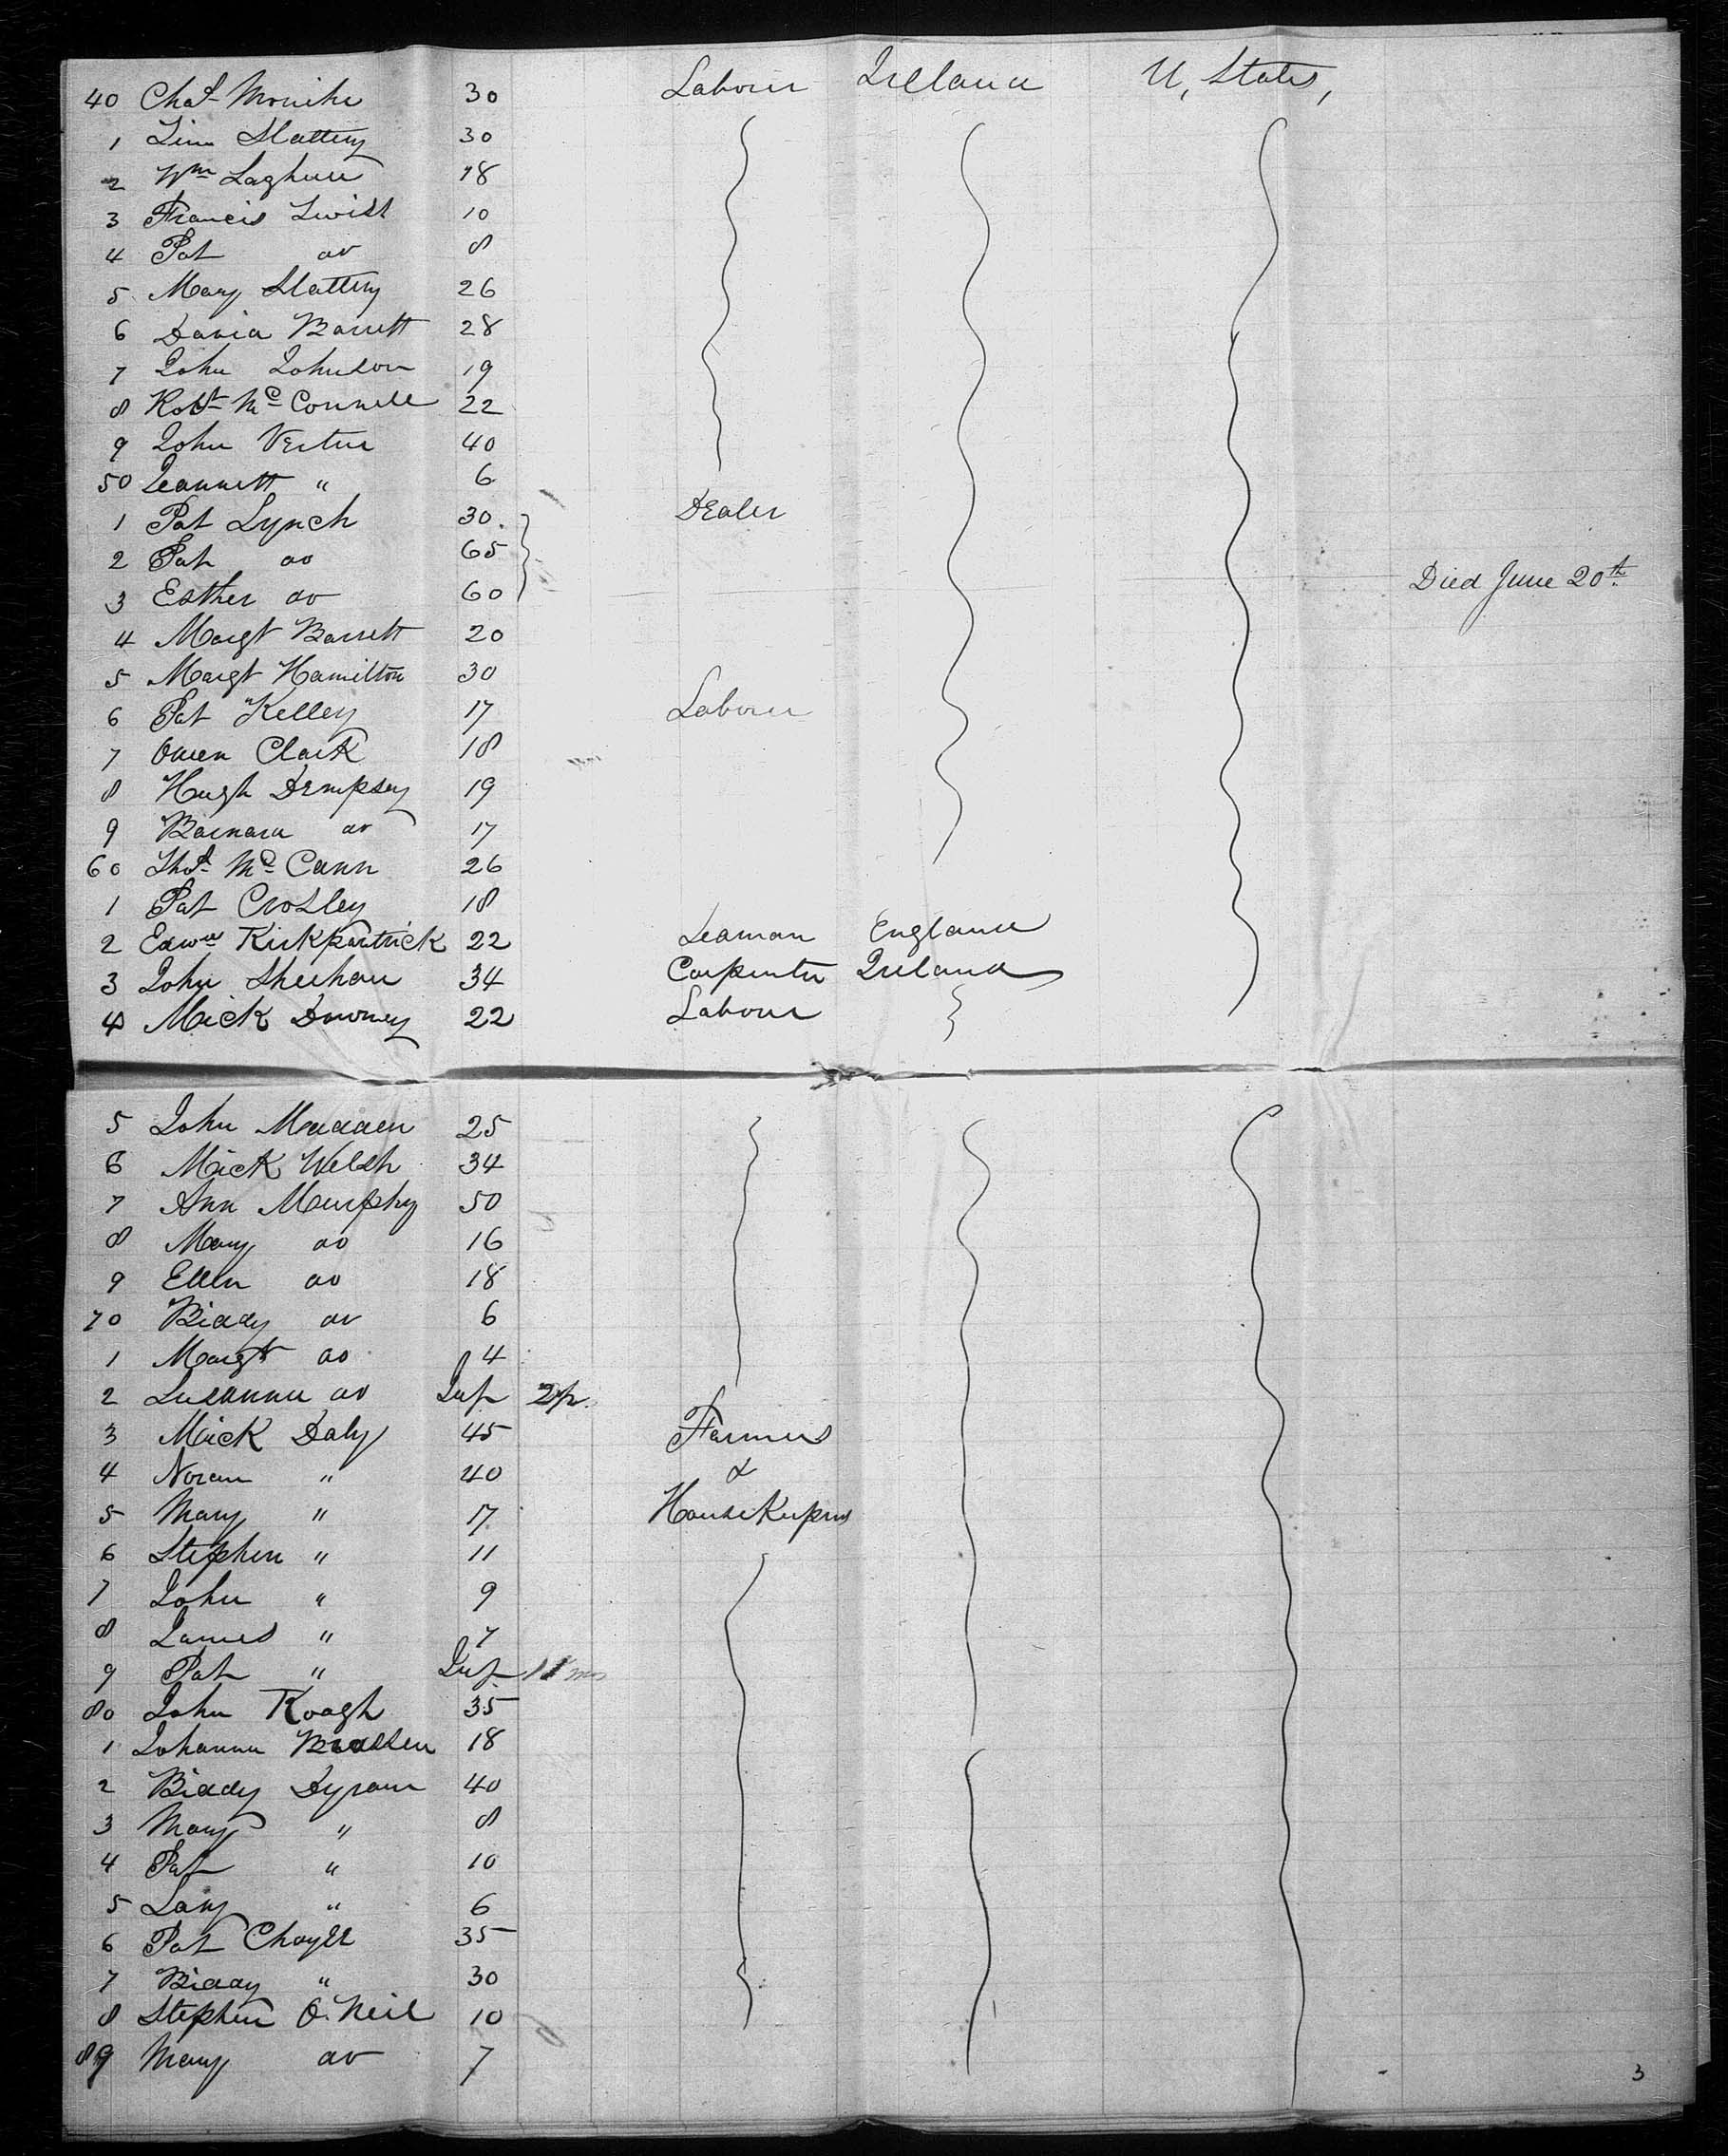 40 Chas Monihe 30 Labour Ireland U, States,
1 Jim Slattery 30
2 Wm Laghue 18
3 Francis Twist 10
4 Pat do 8
5 Mary Slattery 26
6 David Barrett 28
7 John Johnson 19
8 Robt McConnell 22
9 John Vertue 40
50 Jeannett " 6
1 Pat Lynch 30. Dealer
2 Pat do 65
3 Esther do 60 Died June 20th
4 Margt Barrett 20
5 Margt Hamilton 30
6 Pat Kelley 17 Labour
7 Owen Clark 18
8 Hugh Dempsey 19
9 Barnard do 17
60 Thos McCann 26
1 Pat Crosley 18
2 Edwd Kirkpartrick 22 Seaman England
3 John Sheehan 34 Carpenter Ireland
4 Mick Downey 22 Labour
5 John Madden 25
6 Mick Welsh 34
7 Ann Murphy 50
8 Mary do 16
9 Ellen do 18
70 Biddy do 6
1 Margt do 4
2 Susanna do Inf
3 Mick Daly 45 Farmers
4 Noran " 40 &
5 Mary " 17 Housekeepers
6 Stephen " 11
7 John " 9
8 James " 7
9 Pat " Inf 11 mos
80 John Koogh 35
1 Johanna 18
2 Biddy Dyram 40
3 Mary " 8
4 Pat " 10
5 Lary " 6
6 Pat 35
7 Biddy " 30
8 Stephen O'Neil 10
89 Mary do 7
3